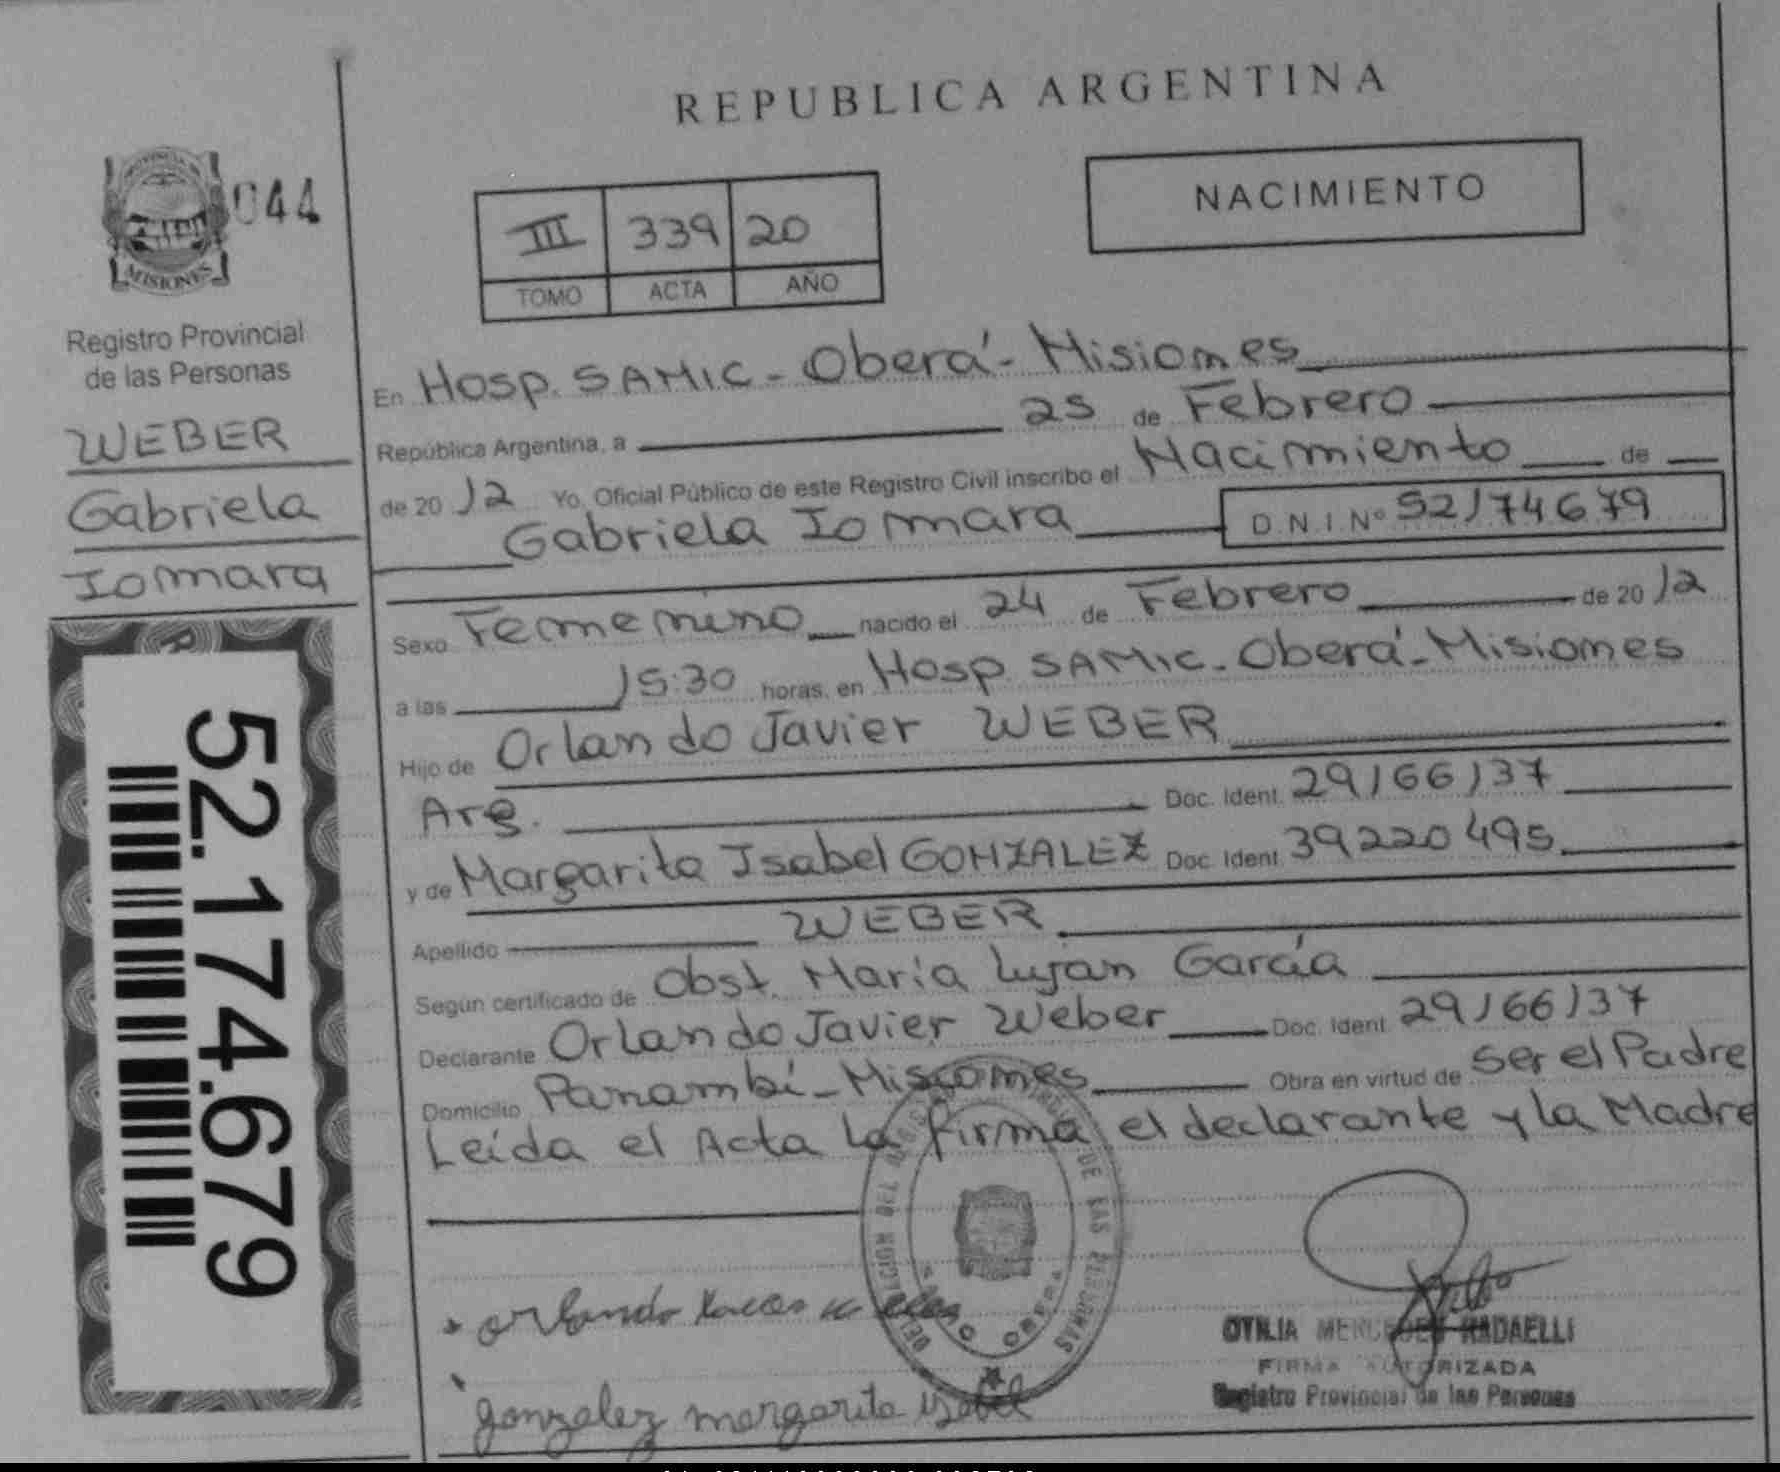 REPUBLICA ARGENTINA
NACIMIENTO
044
MISIONES
III 339 20
TOMO ACTA AÑO
Registro Provincial
de las Personas
WEBER
Gabriela
Iomara
52.174.679
En Hosp. SAMIC - Oberá - Misiones
República Argentina, a 25 de Febrero
de 2012 Yo, Oficial Público de este Registro Civil inscribo el Nacimiento de
Gabriela Iomara D.N.I. Nº 52174679
Sexo Femenino nacido el 24 de Febrero de 2012
a las 15:30 horas, en Hosp. SAMIC - Oberá - Misiones
Hijo de Orlando Javier WEBER
Arg. Doc. Ident. 29166137
y de Margarita Isabel GONZALEZ Doc. Ident. 39220495
Apellido WEBER
Según certificado de Obst. María Lujan García
Declarante Orlando Javier Weber Doc. Ident. 29166137
Domicilio Panambí - Misiones Obra en virtud de ser el Padre
Leída el Acta la firma el declarante y la Madre
DE LAS PERSONAS
OBERA
orlando
gonzalez margarita isabel
OTILIA MERCEDES RADAELLI
FIRMA AUTORIZADA
Registro Provincial de las Personas